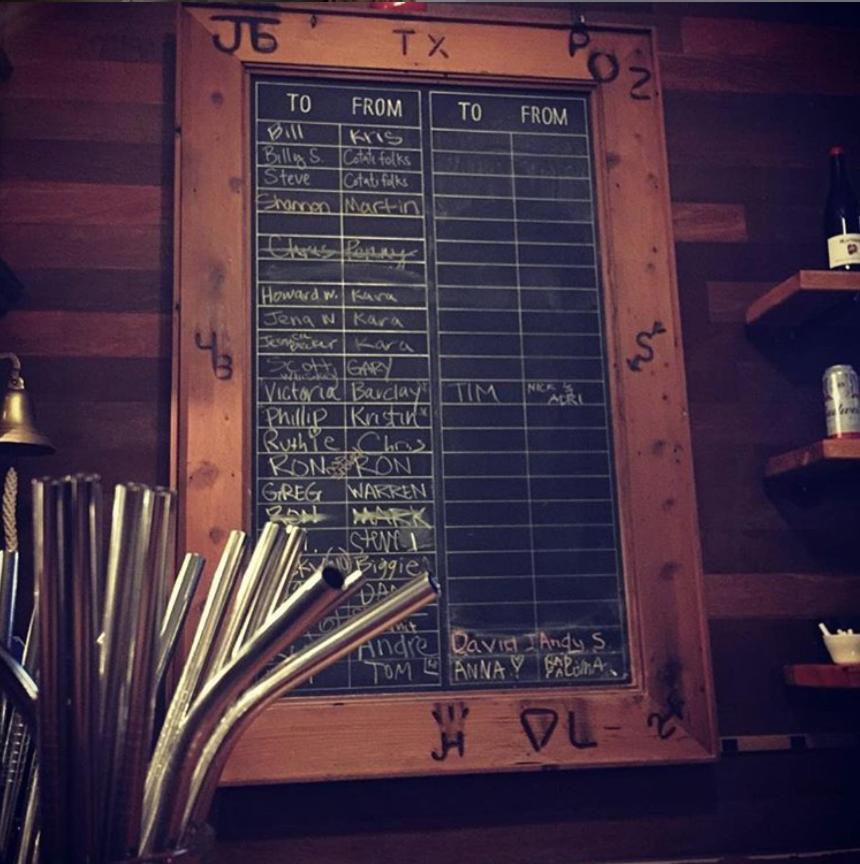 JB TX POZ
TO FROM TO FROM
Bill Kris
Billy S. Cotati folks
Steve Cotati folks
Shannon Martin
Chris Penny
Howard W. Kara
Jena N Kara
Kara
Scott GARY
whiskey
Victoria Barclay TIM NICK & ADRI
Phillip Kristin
Ruthie Chris
RON RON
GREG WARREN
RON MARK
Steve
Biggie
DAN
Andre David J Andy S.
TOM ANNA ♡
4B
S
JH DL